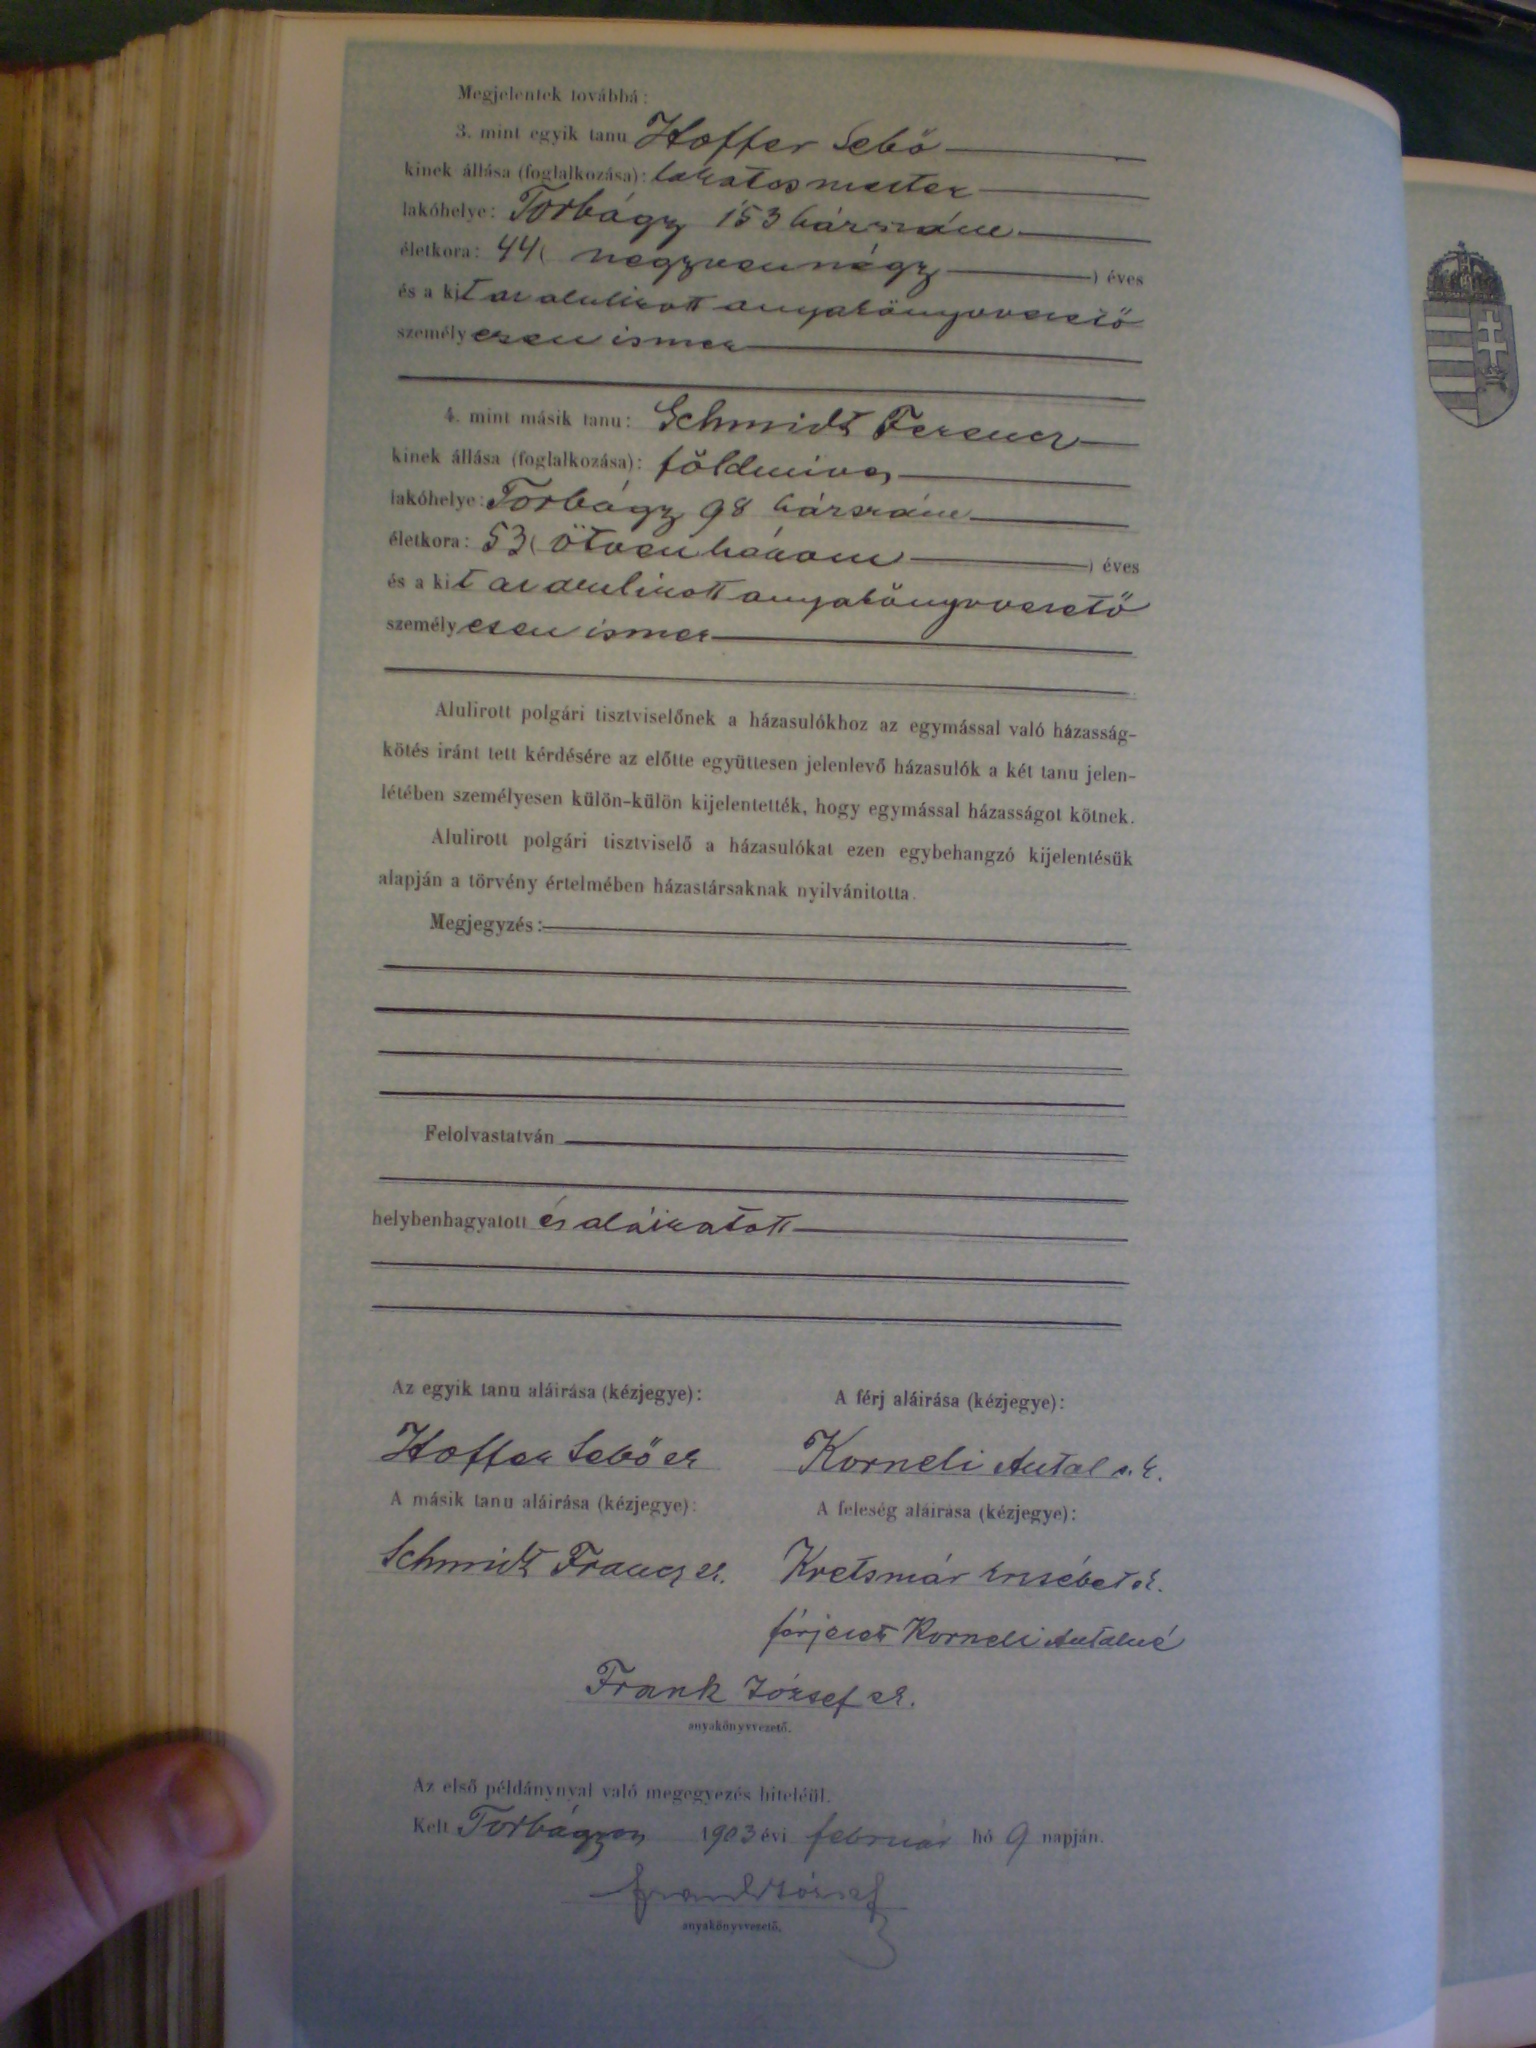 Megjelentek továbbá:
3. mint egyik tanu Hoffer Sebő
kinek állása (foglalkozása): lakatosmester
lakóhelye: Torbágy 153 házszám
életkora: 44 ( negyvennégy ) éves
és a kit az alulirott anyakönyvvezető
személyesen ismer
4. mint másik tanu: Schmidt Ferencz
kinek állása (foglalkozása): földmives
lakóhelye: Torbágy 98 házszám
életkora: 53 ( ötvenhárom ) éves
és a kit az alulirott anyakönyvvezető
személyesen ismer
Alulirott polgári tisztviselőnek a házasulókhoz az egymással való házasság-
kötés iránt tett kérdésére az előtte együttesen jelenlevő házasulók a két tanu jelen-
létében személyesen külön-külön kijelentették, hogy egymással házasságot kötnek.
Alulirott polgári tisztviselő a házasulókat ezen egybehangzó kijelentésük
alapján a törvény értelmében házastársaknak nyilvánitotta.
Megjegyzés:
Felolvastatván
helybenhagyatott és aláiratott
Az egyik tanu aláirása (kézjegye):
Hoffer Sebő sk
A férj aláirása (kézjegye):
Korneli Antal s.k.
A másik tanu aláirása (kézjegye):
Schmidt Francz sk.
A feleség aláirása (kézjegye):
Kretsmár Erzsébet sk.
férjezett Korneli Antalné
Frank József sk.
anyakönyvvezető.
Az első példánynyal való megegyezés hiteléül.
Kelt Torbágyon 1903 évi február hó 9 napján.
Frank József
anyakönyvvezető.